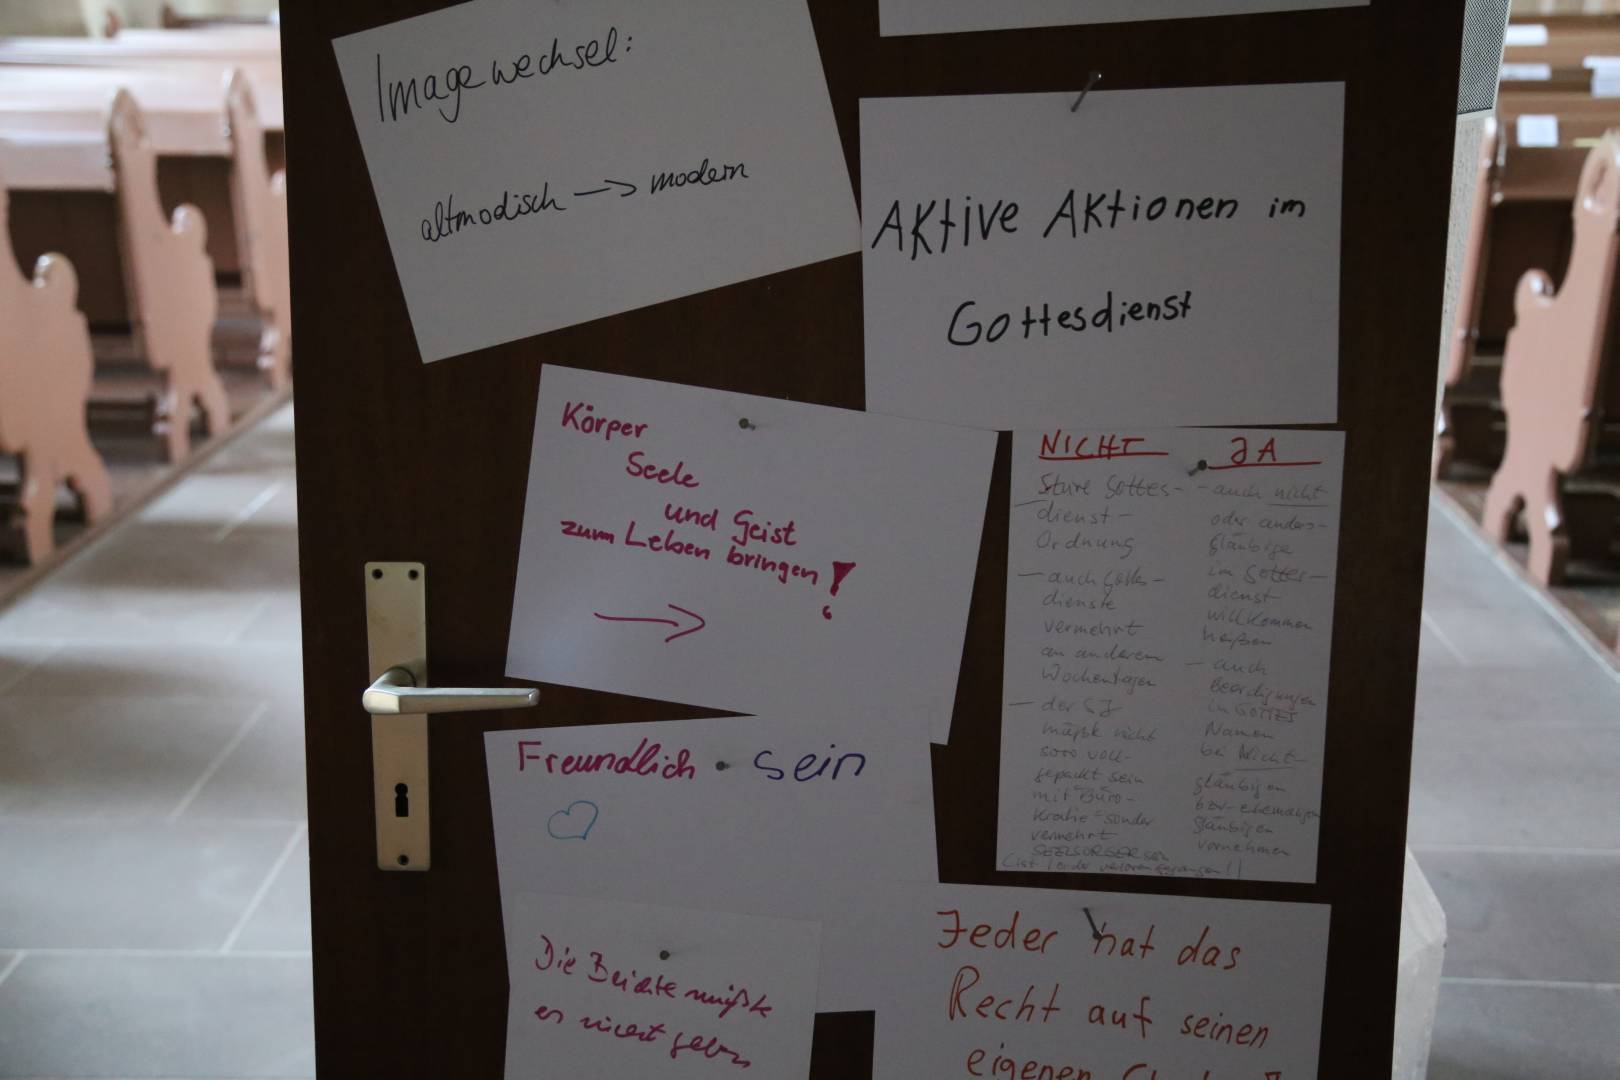 Imagewechsel:
altmodisch → modern
Aktive Aktionen im
Gottesdienst
Körper
Seele
und Geist
zum Leben bringen!
→
NICHT
Sture Gottes-
dienst-
Ordnung
— auch Gottes-
dienste
vermehrt
an anderem
Wochentagen
— der
müßte nicht
sooo voll-
gepackt sein
mit Büro-
kratie - sonder
vermehrt
SEELSORGER sein
JA
- auch nicht
oder anders-
gläubige
im Gottes-
dienst
willkommen
heißen
— auch
Beerdigungen
in GOTTES
Namen
bei Nicht-
gläubigen
bzw. ehemaligen
gläubigen
vornehmen
(ist leider verloren gegangen!)
Freundlich sein
Die Beichte müßte
es nicht geben
Jeder hat das
Recht auf seinen
eigenen